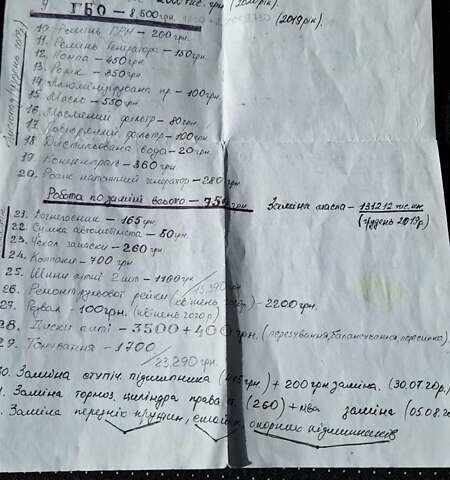 9. ГБО - 8,500грн. (2019рік).
10. Ремінь ГРН - 200 грн.
11. Ремінь Генератора - 150грн
12. Помпа - 450грн
13. Ролік - 350грн
пр - 100грн
15. Масло - 550грн
16. Масляний фільтр - 80грн
17. Повітряний фільтр - 100грн
18. Дистильована вода - 20грн
19. Концентрат - 360грн
20. Ролік натяжний генератор - 280грн
Робота по заміні всього - 750грн
Заміна масла - 131212 тис. км.
(грудень 2019р)
21. Вогнегасник - 165грн
22. Сумка автомобіліста - 50грн
23. Чехол запаски - 260грн
24. Колпаки - 700 грн
25. Шини літні 2шт - 1100грн
26. Ремонт рульової рейки (квітень 2020р.) - 2200грн.
27. Розвал - 100грн. (квітень 2020р.)
28. Диски литі - 3500 + 400грн. (перезування, балансування,
29. Тонування - 1700
23,290 грн
30. Заміна ступіч. підшипника + 200грн заміна. (30.07.20р.)
Заміна тормоз. циліндра права (260) + заміна (05.08.
Заміна передніх пружин, опорних підшипників